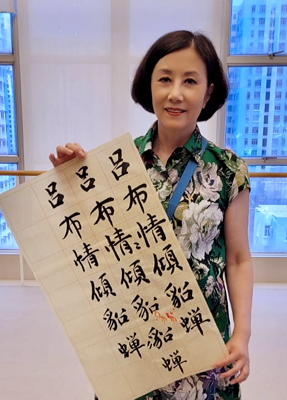 呂布情傾貂蟬
呂布情傾貂蟬
呂布情傾貂蟬